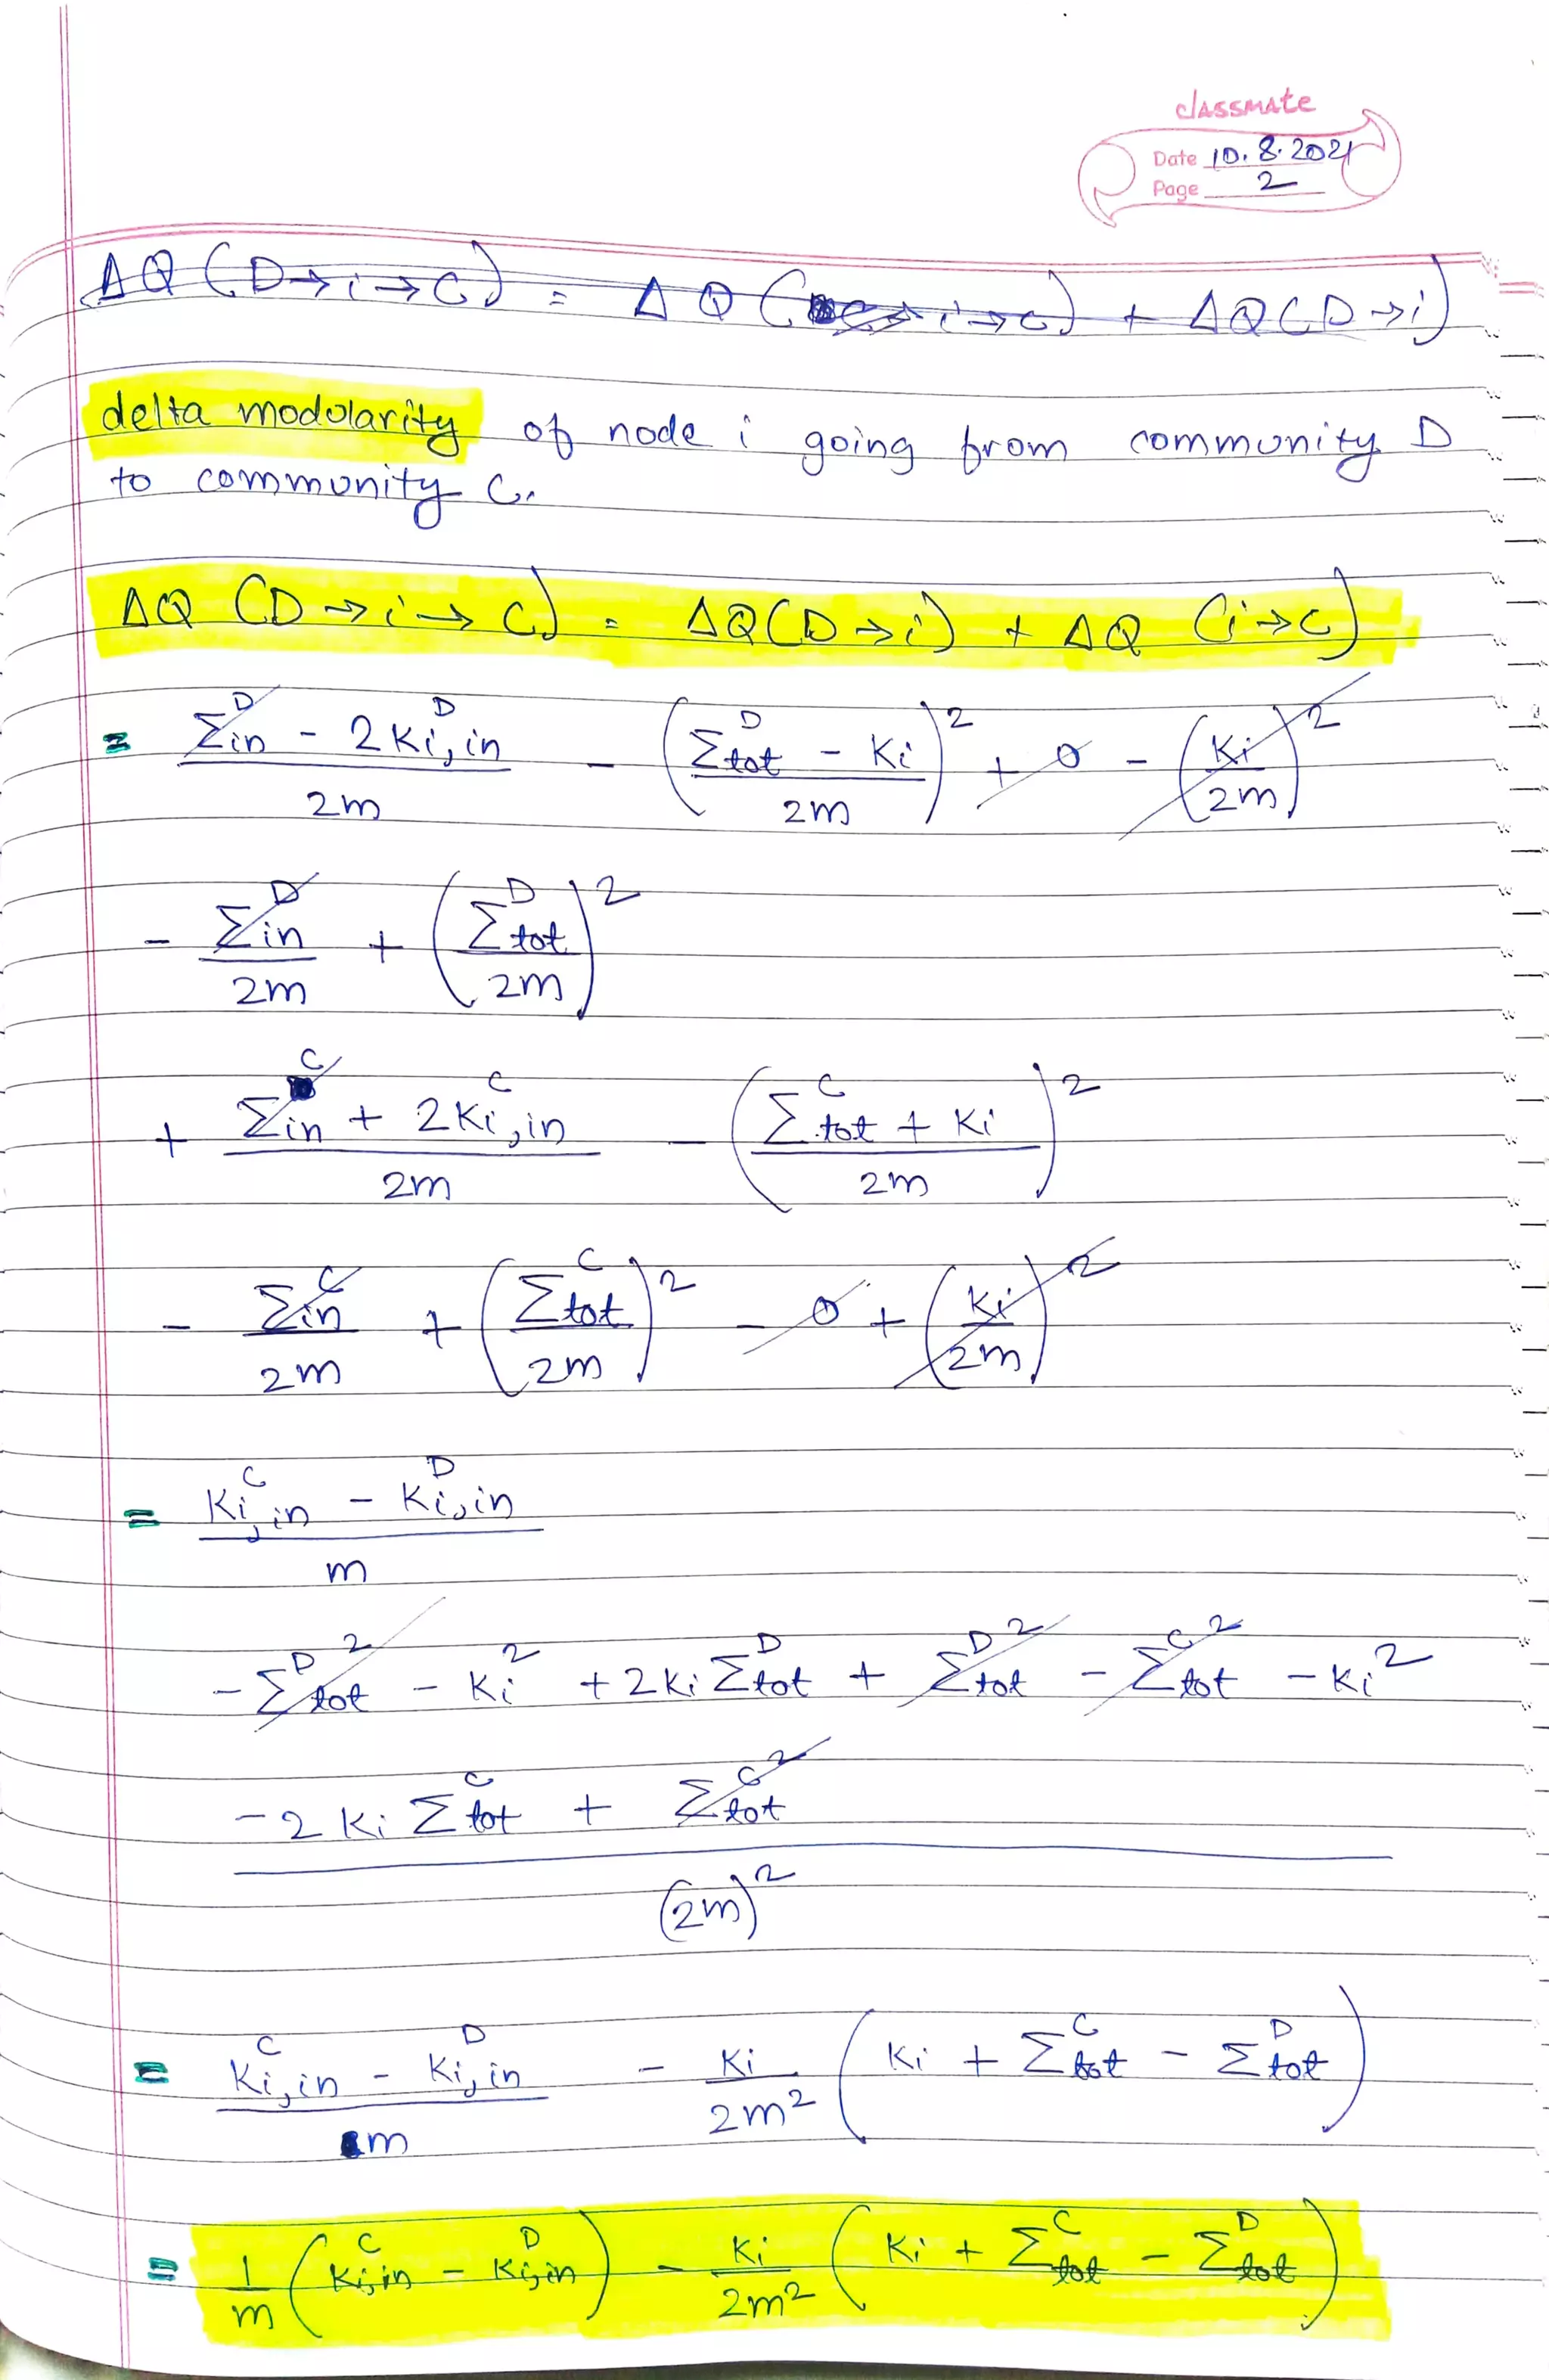 classmate
Date 10.8.2021
Page 2
ΔQ (D→i→C) = ΔQ ( i→C) + ΔQ(D→i)
delta modularity of node i going from community D
to community C.
ΔQ (D→i→C) = ΔQ(D→i) + ΔQ (i→C)
= (Σ_in^D - 2K_i,in^D)/2m - ((Σ_tot^D - K_i)/2m)^2 + 0 - (K_i/2m)^2
- Σ_in^D/2m + (Σ_tot^D/2m)^2
+ (Σ_in^C + 2K_i,in^C)/2m - ((Σ_tot^C + K_i)/2m)^2
- Σ_in^C/2m + (Σ_tot^C/2m)^2 - 0 + (K_i/2m)^2
= (K_i,in^C - K_i,in^D)/m
- Σ_tot^D^2 - K_i^2 + 2K_i Σ_tot^D + Σ_tot^D^2 - Σ_tot^C^2 - K_i^2
- 2K_i Σ_tot^C + Σ_tot^C^2
(2m)^2
= (K_i,in^C - K_i,in^D)/m - K_i/2m^2 (K_i + Σ_tot^C - Σ_tot^D)
= 1/m (K_i,in^C - K_i,in^D) - K_i/2m^2 (K_i + Σ_tot^C - Σ_tot^D)